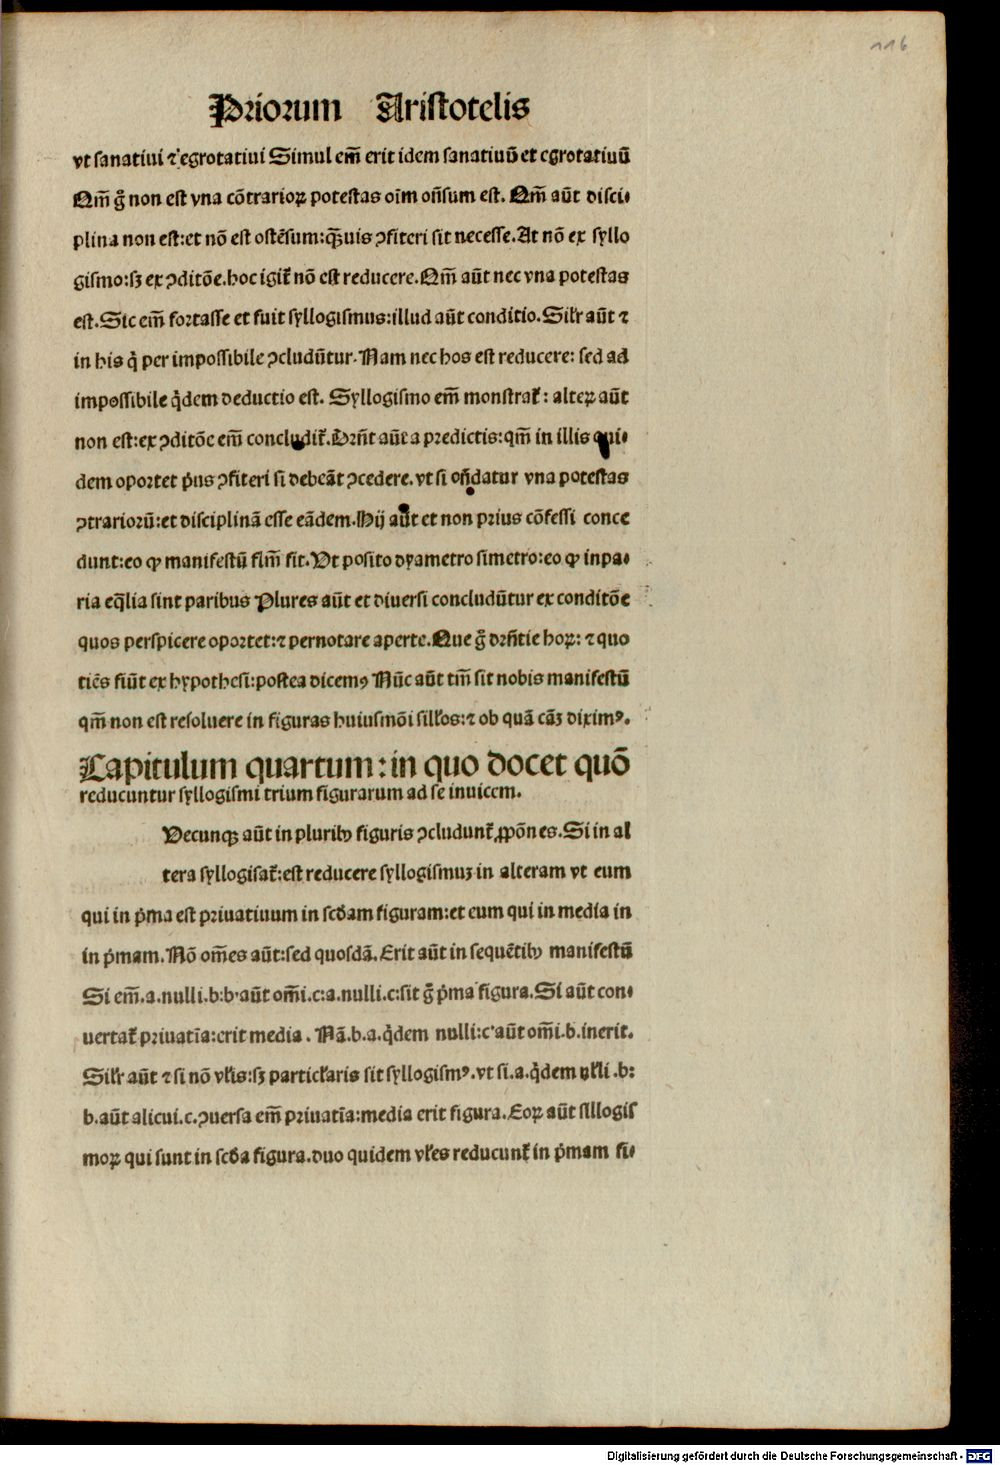 116
Priorum Aristotelis
vt sanatiui ⁊ egrotatiui Simul em̄ erit idem sanatiuū et egrotatiuū
Qm̄ g̊ non est vna cōtrarioꝝ potestas oīm on̄sum est. Qm̄ aūt disci-
plina non est: et nō est ostēsum: qꝫuis ↄfiteri sit necesse. At nō ex syllo
gismo: sꝫ ex ↄditōe. hoc igit̃ nō est reducere. Qm̄ aūt nec vna potestas
est. Sic em̄ fortasse et fuit syllogismus: illud aūt conditio. Silr̃ aūt ⁊
in his q̇ per impossibile ↄcludūtur. Nam nec hos est reducere: sed ad
impossibile q̇dem deductio est. Syllogismo em̄ monstrat̃: alteꝝ aūt
non est: ex ↄditōe em̄ concludit̃. Drn̄t aūt a predictis: qm̄ in illis qui-
dem oportet p̓us ↄfiteri si debeāt ↄcedere. vt si on̄datur vna potestas
ↄtrariorū: et disciplinā esse eādem. Hij aūt et non prius cōfessi conce
dunt: eo ꝙ manifestū flm̄ sit. Vt posito dyametro simetro: eo ꝙ inpa-
ria eq̄lia sint paribus Plures aūt et diuersi concludūtur ex conditōe
quos perspicere oportet: ⁊ pernotare aperte. Que g̊ drn̄tie hoꝝ: ⁊ quo
tiēs fiūt ex hypothesi: postea dicemꝰ Nūc aūt tm̄ sit nobis manifestū
qm̄ non est resoluere in figuras huiusmōi sillo̓s: ⁊ ob quā cāꝫ diximꝰ.
Capitulum quartum: in quo docet quō
reducuntur syllogismi trium figurarum ad se inuicem.
Vecunqꝫ aūt in pluribꝰ figuris ↄcludunt̃ ꝓpōnes. Si in al
tera syllogisat̃: est reducere syllogismuꝫ in alteram vt eum
qui in p̓ma est priuatiuum in scd̓am figuram: et eum qui in media in
in p̓mam. Nō om̄es aūt: sed quosdā. Erit aūt in sequētibꝰ manifestū
Si em̄. a. nulli. b: b. aūt om̄i. c: a. nulli. c: sit g̊ p̓ma figura. Si aūt con-
uertat̃ priuatīa: erit media. Nā. b. a. q̇dem nulli: c. aūt om̄i. b. inerit.
Silr̃ aūt ⁊ si nō vl̓is: sꝫ particl̓aris sit syllogismꝰ. vt si. a. q̇dem nl̓li. b:
b. aūt alicui. c. ↄuersa em̄ priuatīa: media erit figura. Eoꝝ aūt sillogis
moꝝ qui sunt in scd̓a figura. duo quidem vl̓es reducunt̃ in p̓mam fi-
Digitalisierung gefördert durch die Deutsche Forschungsgemeinschaft - DFG